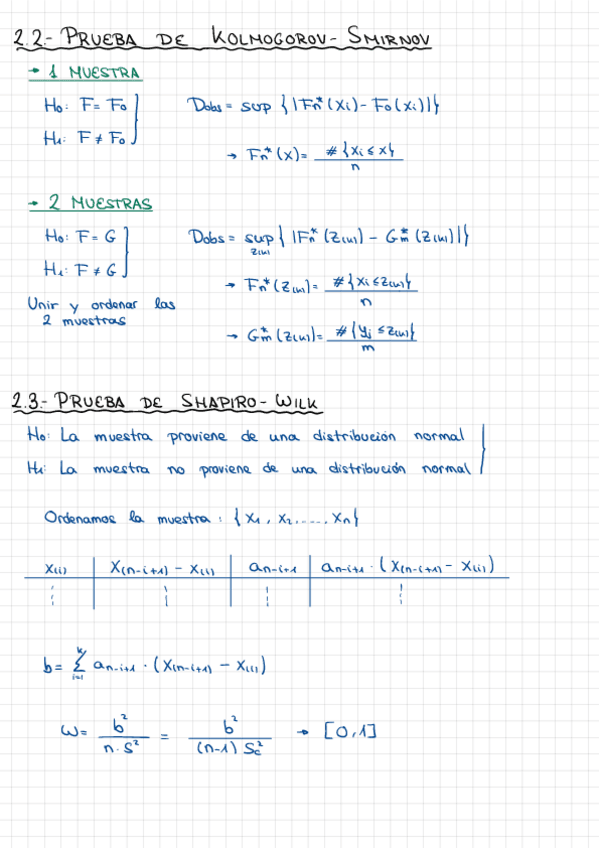 2.2.- PRUEBA DE KOLMOGOROV-SMIRNOV
→ 1 MUESTRA
H₀: F = F₀
Dobs = sup {|Fn*(xi) - F₀(xi)|}
H₁: F ≠ F₀
→ Fn*(x) = #{xi ≤ x} / n
→ 2 MUESTRAS
H₀: F = G
Dobs = sup z(k) {|Fn*(z(k)) - Gm*(z(k))|}
H₁: F ≠ G
→ Fn*(z(k)) = #{xi ≤ z(k)} / n
Unir y ordenar las
2 muestras
→ Gm*(z(k)) = #{yj ≤ z(k)} / m
2.3.- PRUEBA DE SHAPIRO-WILK
H₀: La muestra proviene de una distribución normal
H₁: La muestra no proviene de una distribución normal
Ordenamos la muestra: {x₁, x₂, ...., xn}
x(i) | x(n-i+1) - x(i) | an-i+1 | an-i+1 · (x(n-i+1) - x(i))
⋮ | ⋮ | ⋮ | ⋮
b = Σ i=1 k an-i+1 · (x(n-i+1) - x(i))
ω = b² / n·S² = b² / (n-1) Sc² → [0,1]